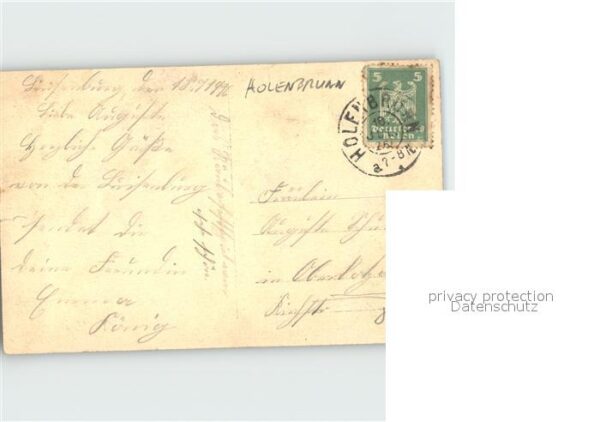 Luisenburg den 18.7.1926
Liebe Auguste
Herzliche Grüße
von der Luisenburg
sendet dir
deine Freundin
Emma
König
HOLENBRUNN
5 5
Deutsches
Reich
HOLENBRUNN
a 7-8 N.
Fräulein
Auguste
in Oberkotzau
privacy protection
Datenschutz